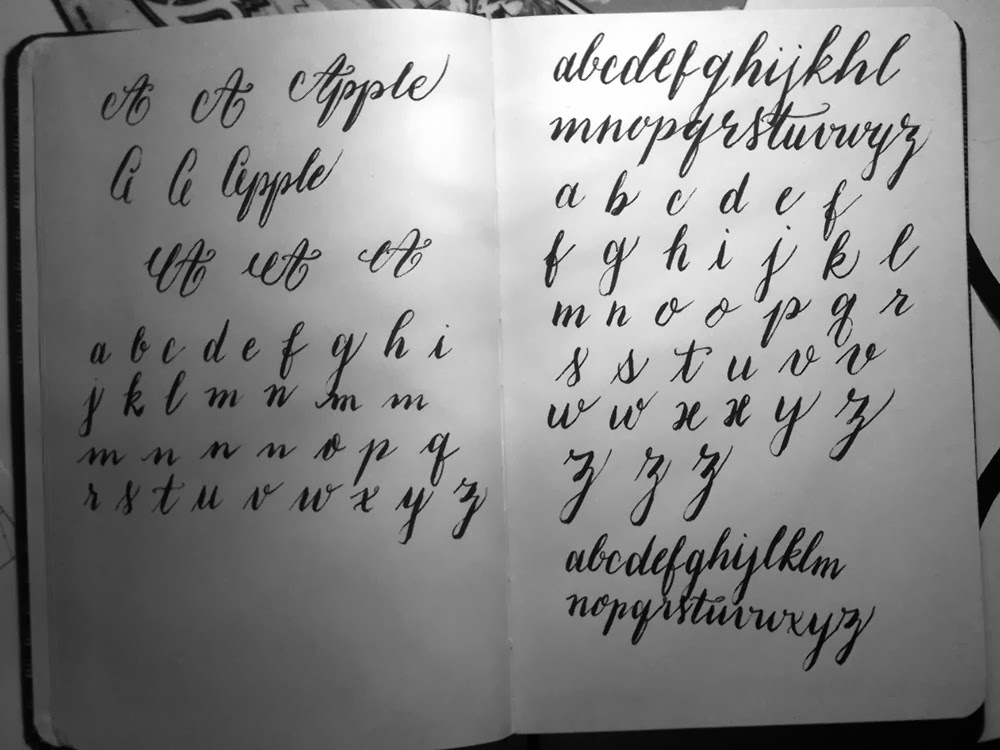 A A Apple
A A Apple
A A A
a b c d e f g h i
j k l m n m m
m n n n o p q
r s t u v w x y z
abcdefghijkhl
mnopqrstuvwyz
a b c d e f
f g h i j k l
m n o o p q r
s s t u v v
w w x x y z
z z z
abcdefghijlklm
nopqrstuvwxyz